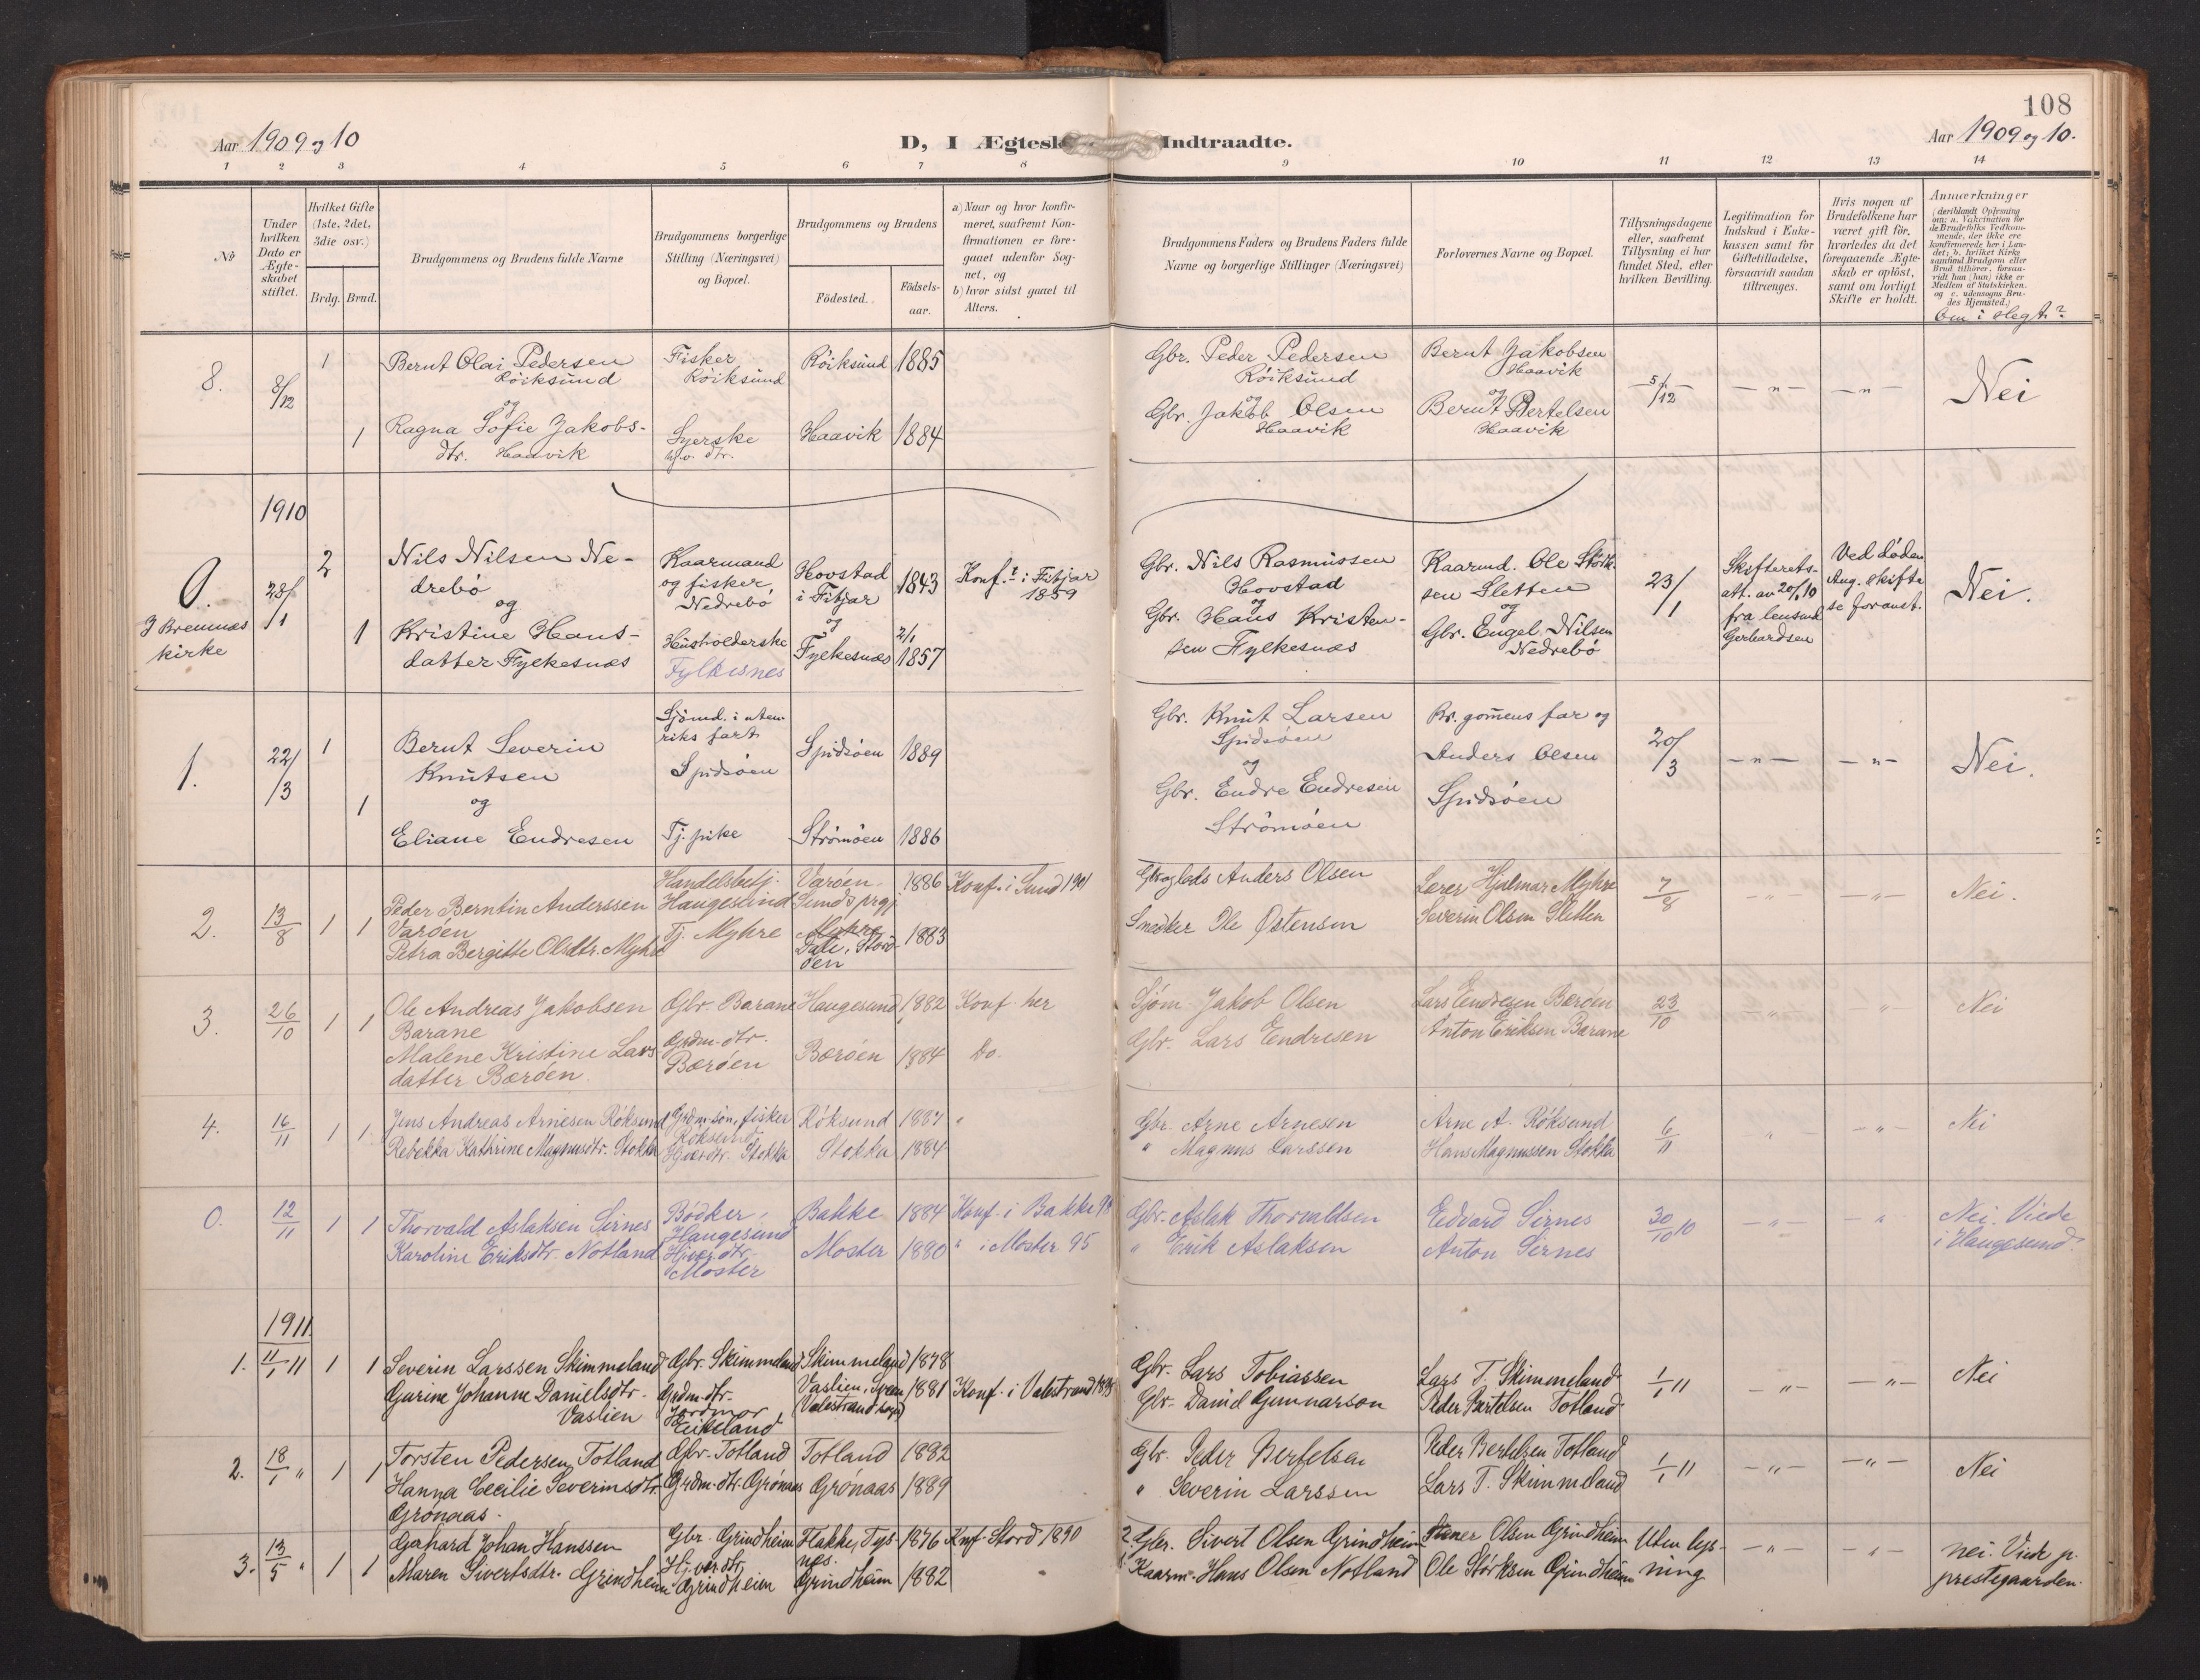 108
Aar 1909 og 10
D, I Ægtesk Indtraadte.
Aar 1909 og 10.
1 2 3 4 5 6 7 8 9 10 11 12 13 14
No
Under hvilken Dato er Ægteskabet stiftet.
Hvilket Gifte (1ste, 2det, 3die osv.)
Brdg. Brud.
Brudgommens og Brudens fulde Navne
Brudgommens borgerlige Stilling (Næringsvei) og Bopæl.
Brudgommens og Brudens
Födested.
Födselsaar.
a) Naar og hvor konfirmeret, saafremt Konfirmationen er foregaaet udenfor Sognet, og
b) hvor sidst gaaet til Alters.
Brudgommens Faders og Brudens Faders fulde Navne og borgerlige Stillinger (Næringsvei)
Forlovernes Navne og Bopæl.
Tillysningsdagene eller, saafremt Tillysning ei har fundet Sted, efter hvilken Bevilling.
Legitimation for Indskud i Enkekassen samt for Giftetilladelse, forsaavidt saadan tiltrænges.
Hvis nogen af Brudefolkene har været gift för, hvorledes da det foregaaende Ægteskab er oplöst, samt om lovligt Skifte er holdt.
Anmærkninger
(deriblandt Oplysning om: a. Vakcination for de Brudefolks Vedkommende, der ikke ere konfirmerede her i Landet; b. hvilket Kirkesamfund Brudgom eller Brud tilhörer, forsaavidt han (hun) ikke er Medlem af Statskirken, og c. udensogns Brudes Hjemsted.)
Om i slegt?
8. 8/12 1
Bernt Olai Pedersen Röiksund
Fisker Röiksund
Röiksund 1885
Gbr. Peder Pedersen Röiksund
Bernt Jakobsen Haavik
5/12 — " — — " — Nei
og
1 Ragna Sofie Jakobsdtr. Haavik
Syerske
Haavik 1884
og
Gbr. Jakob Olsen Haavik
og
Bernt Bertelsen Haavik
1910
0. I Bremnes kirke
28/1 2
Nils Nilsen Nedrebö
Kaarmand og fisker, Nedrebö
Hovstad i Fitjar 1843
Konf. i Fitjar 1859
Gbr. Nils Rasmussen Hovstad
Kaarmd. Ole Störksen Sletten
23/1
Skifterets-att. av 20/1 10 fra lensmd Gerhardsen
Ved döden Aug. skifte
Nei.
og
1 Kristine Hansdatter Fylkesnæs
Husholderske Fylkesnes
og
Fylkesnæs 2/1 1857
og
Gbr. Hans Kristensen Fylkesnæs
og
Gbr. Engel Nilsen Nedrebö
1. 22/3 1
Bernt Severin Knutsen
Sjömd. i utenriks fart Spidsöen
Spidsöen 1889
Gbr. Knut Larsen Spidsöen
Br. gomens far og Anders Olsen Spidsöen
20/3 — " — — " — Nei.
og
1 Eliane Endresen
Tj. pike
Strömöen 1886
og
Gbr. Endre Endresen Strömöen
2. 13/8 1 1
Peder Berntin Anderssen Varöen
Handelsbetj. Haugesund
Varöen Sunds prgj. 1886
Konf. i Sund 1901
Anders Olsen
Lærer Hjalmar Myhre
7/8 — " — — " — Nei.
Petra Bergitte Olsdtr. Myhre
Tj. Myhre
Myhre Dale, Stordöen 1883
Snedker Ole Østensen
Severin Olsen Sletten
3. 26/10 1 1
Ole Andreas Jakobsen Barane
Gbr. Barane
Haugesund 1882
Konf. her
Sjöm. Jakob Olsen
Lars Endresen Beröen
23/10 — " — " — Nei
Malene Kristine Larsdatter Bæröen
Grdm. dtr. Bæröen
Bæröen 1884
Do.
Gbr. Lars Endresen
Anton Eriksen Barane
4. 16/11 1 1
Jens Andreas Arnesen Röksund
Grdm. sön, fisker Röksund
Röksund 1887 "
Gbr. Arne Arnesen
Arne A. Röksund
6/11 " — " — Nei
Rebekka Kathrine Magnusdtr. Stokka
Stokka
Stokka 1884
" Magnus Larssen
Hans Magnussen Stokka
0. 12/11 1 1
Thorvald Aslaksen Sirnes
Bödker, Haugesund
Bakke 1884
Konf. i Bakke
Gbr. Aslak Thorvaldsen
Edvard Sirnes
30/10 10 — " — — " Nei. Viede i Haugesund.
Karoline Eriksdtr. Notland
Hjvær. dtr. Moster
Moster 1880
" i Moster 95
" Erik Aslaksen
Anton Sirnes
1911
1. 11/1 11 1 1
Severin Larssen Skimmeland
Gbr. Skimmeland
Skimmeland 1878
Gbr. Lars Tobiassen
Lars T. Skimmeland
1/1 11 — " — — " — Nei
Gurine Johanne Danielsdtr. Vaslien
Grdm. dtr. Jordmor Eikeland
Vaslien, Sveen (Valestrand sogn) 1881
Konf. i Valestrand
Gbr. Daniel Gunnarson
Peder Bertelsen Totland
2. 18/1 " 1 1
Torsten Pedersen Totland
Gbr. Totland
Totland 1882
Gbr. Peder Bertelsen
Peder Bertelsen Totland
1/1 11 — " — — " — Nei
Hanna Cecilie Severinsdtr. Grönaas.
Grdm. dtr. Grönaas
Grönaas 1889
" Severin Larssen
Lars T. Skimmeland
3. 13/5 " 1 1
Gerhard Johan Hanssen
Gbr. Grindheim
Flakke, Tysnes. 1876
Knf. Stord 1890
2. Gbr. Sivert Olsen Grindheim
Olsen Grindheim
Uten lysning — " — — " — nei. Viede p. prestegaarden.
Maren Sivertsdtr. Grindheim
Hj. vær. dtr. Grindheim
Grindheim 1882
1. Kaarm. Hans Olsen Notland
Ole Störksen Grindheim